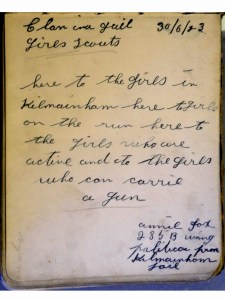 Clan na gael 30/6/23
Girls Scouts
here to the girls in
Kilmainham here to girls
on the run here to
the girls who are
active and to the girls
who can carrie
a gun
annie fox
285 B wing
political prison
Kilmainham
Jail